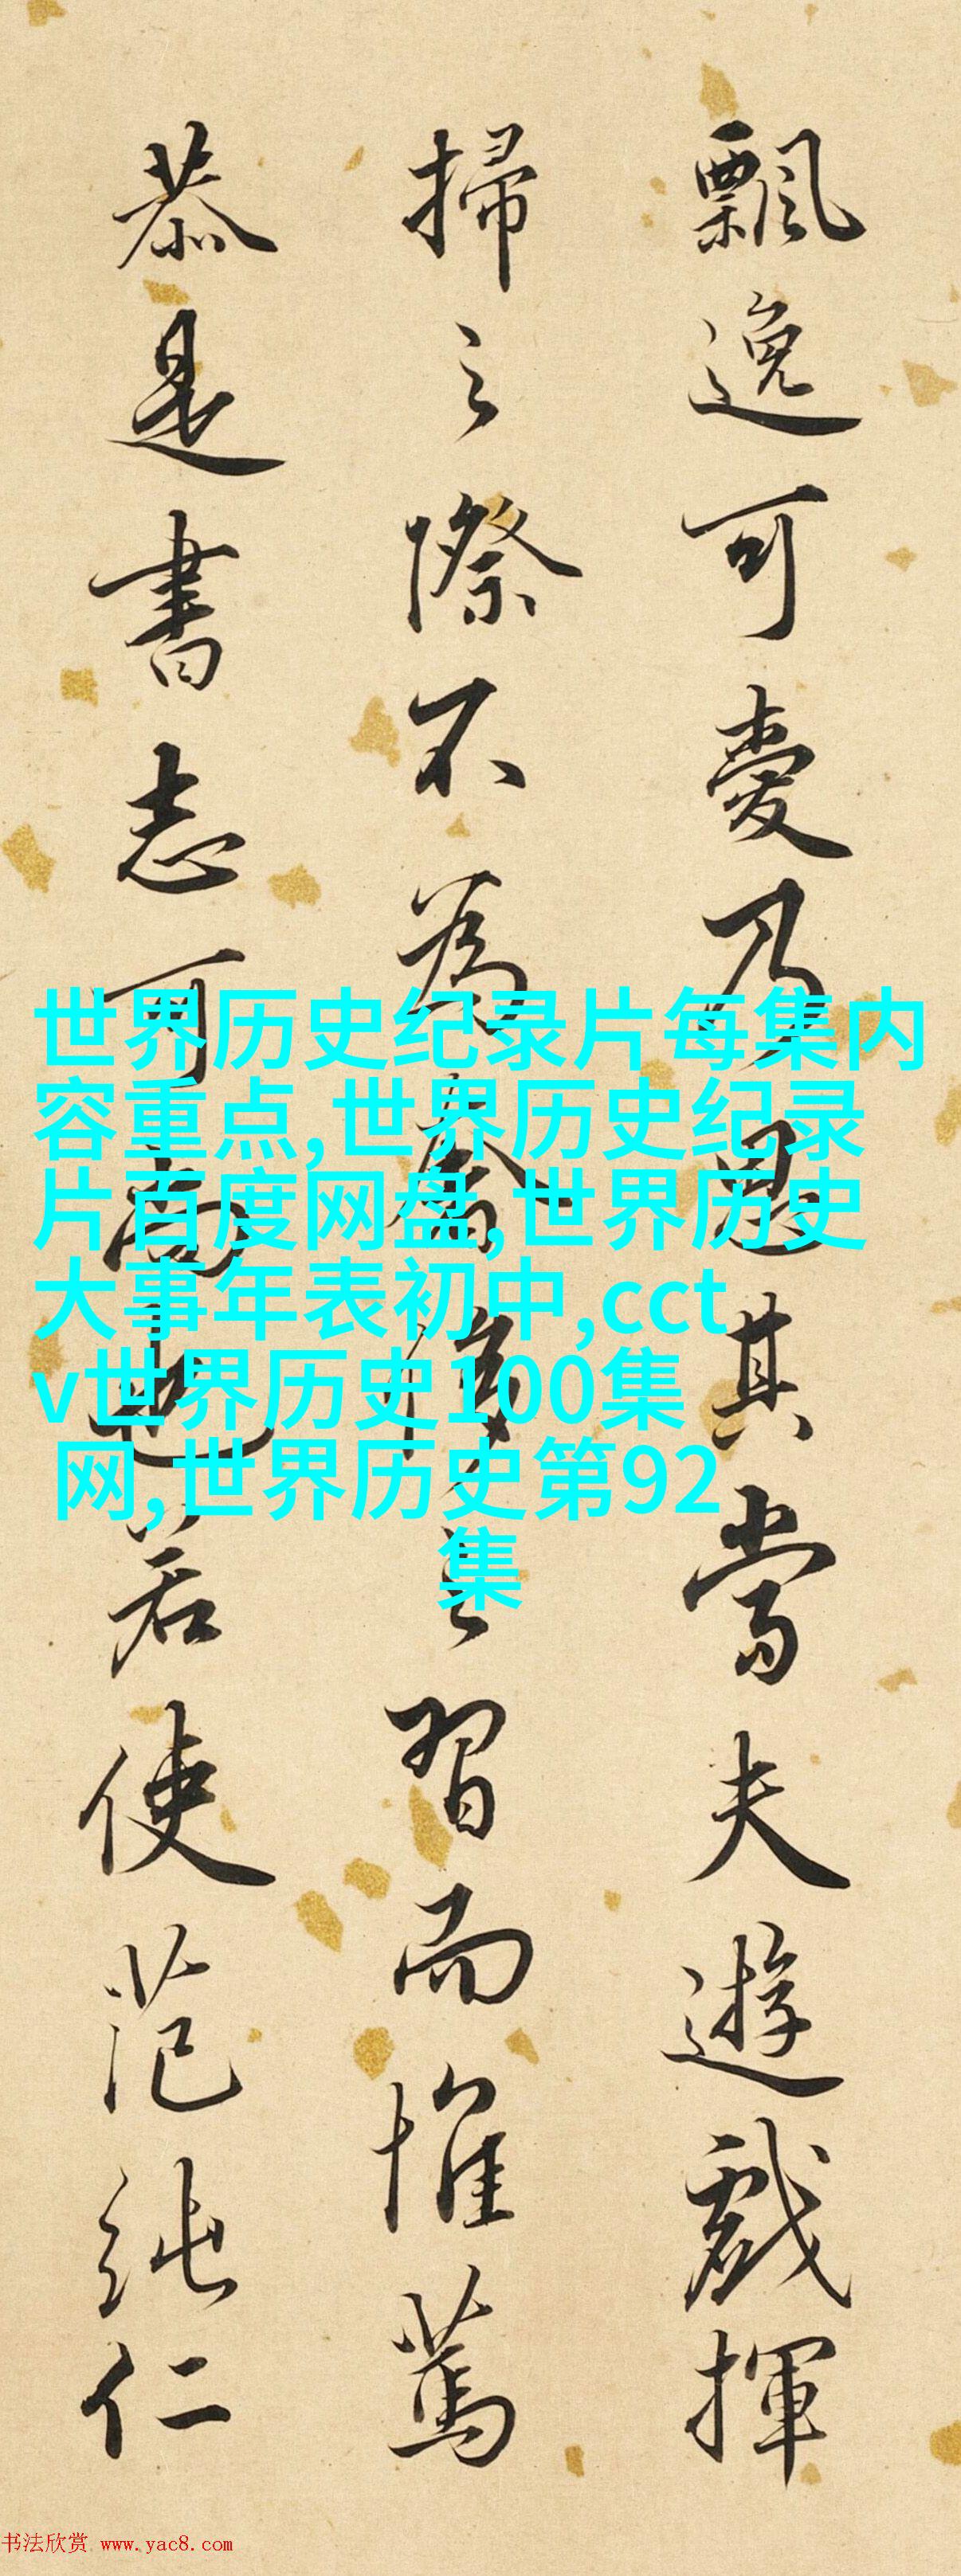 飄逸可愛乃思其嘗夫遊戲揮
掃之際不為奢侈之習而惟篤
恭是書志可尚也若使范純仁
世界历史纪录片每集内
容重点,世界历史纪录
片百度网盘,世界历史
大事年表初中,cct
v世界历史100集
网,世界历史第92
集
书法欣赏 www.yac8.com